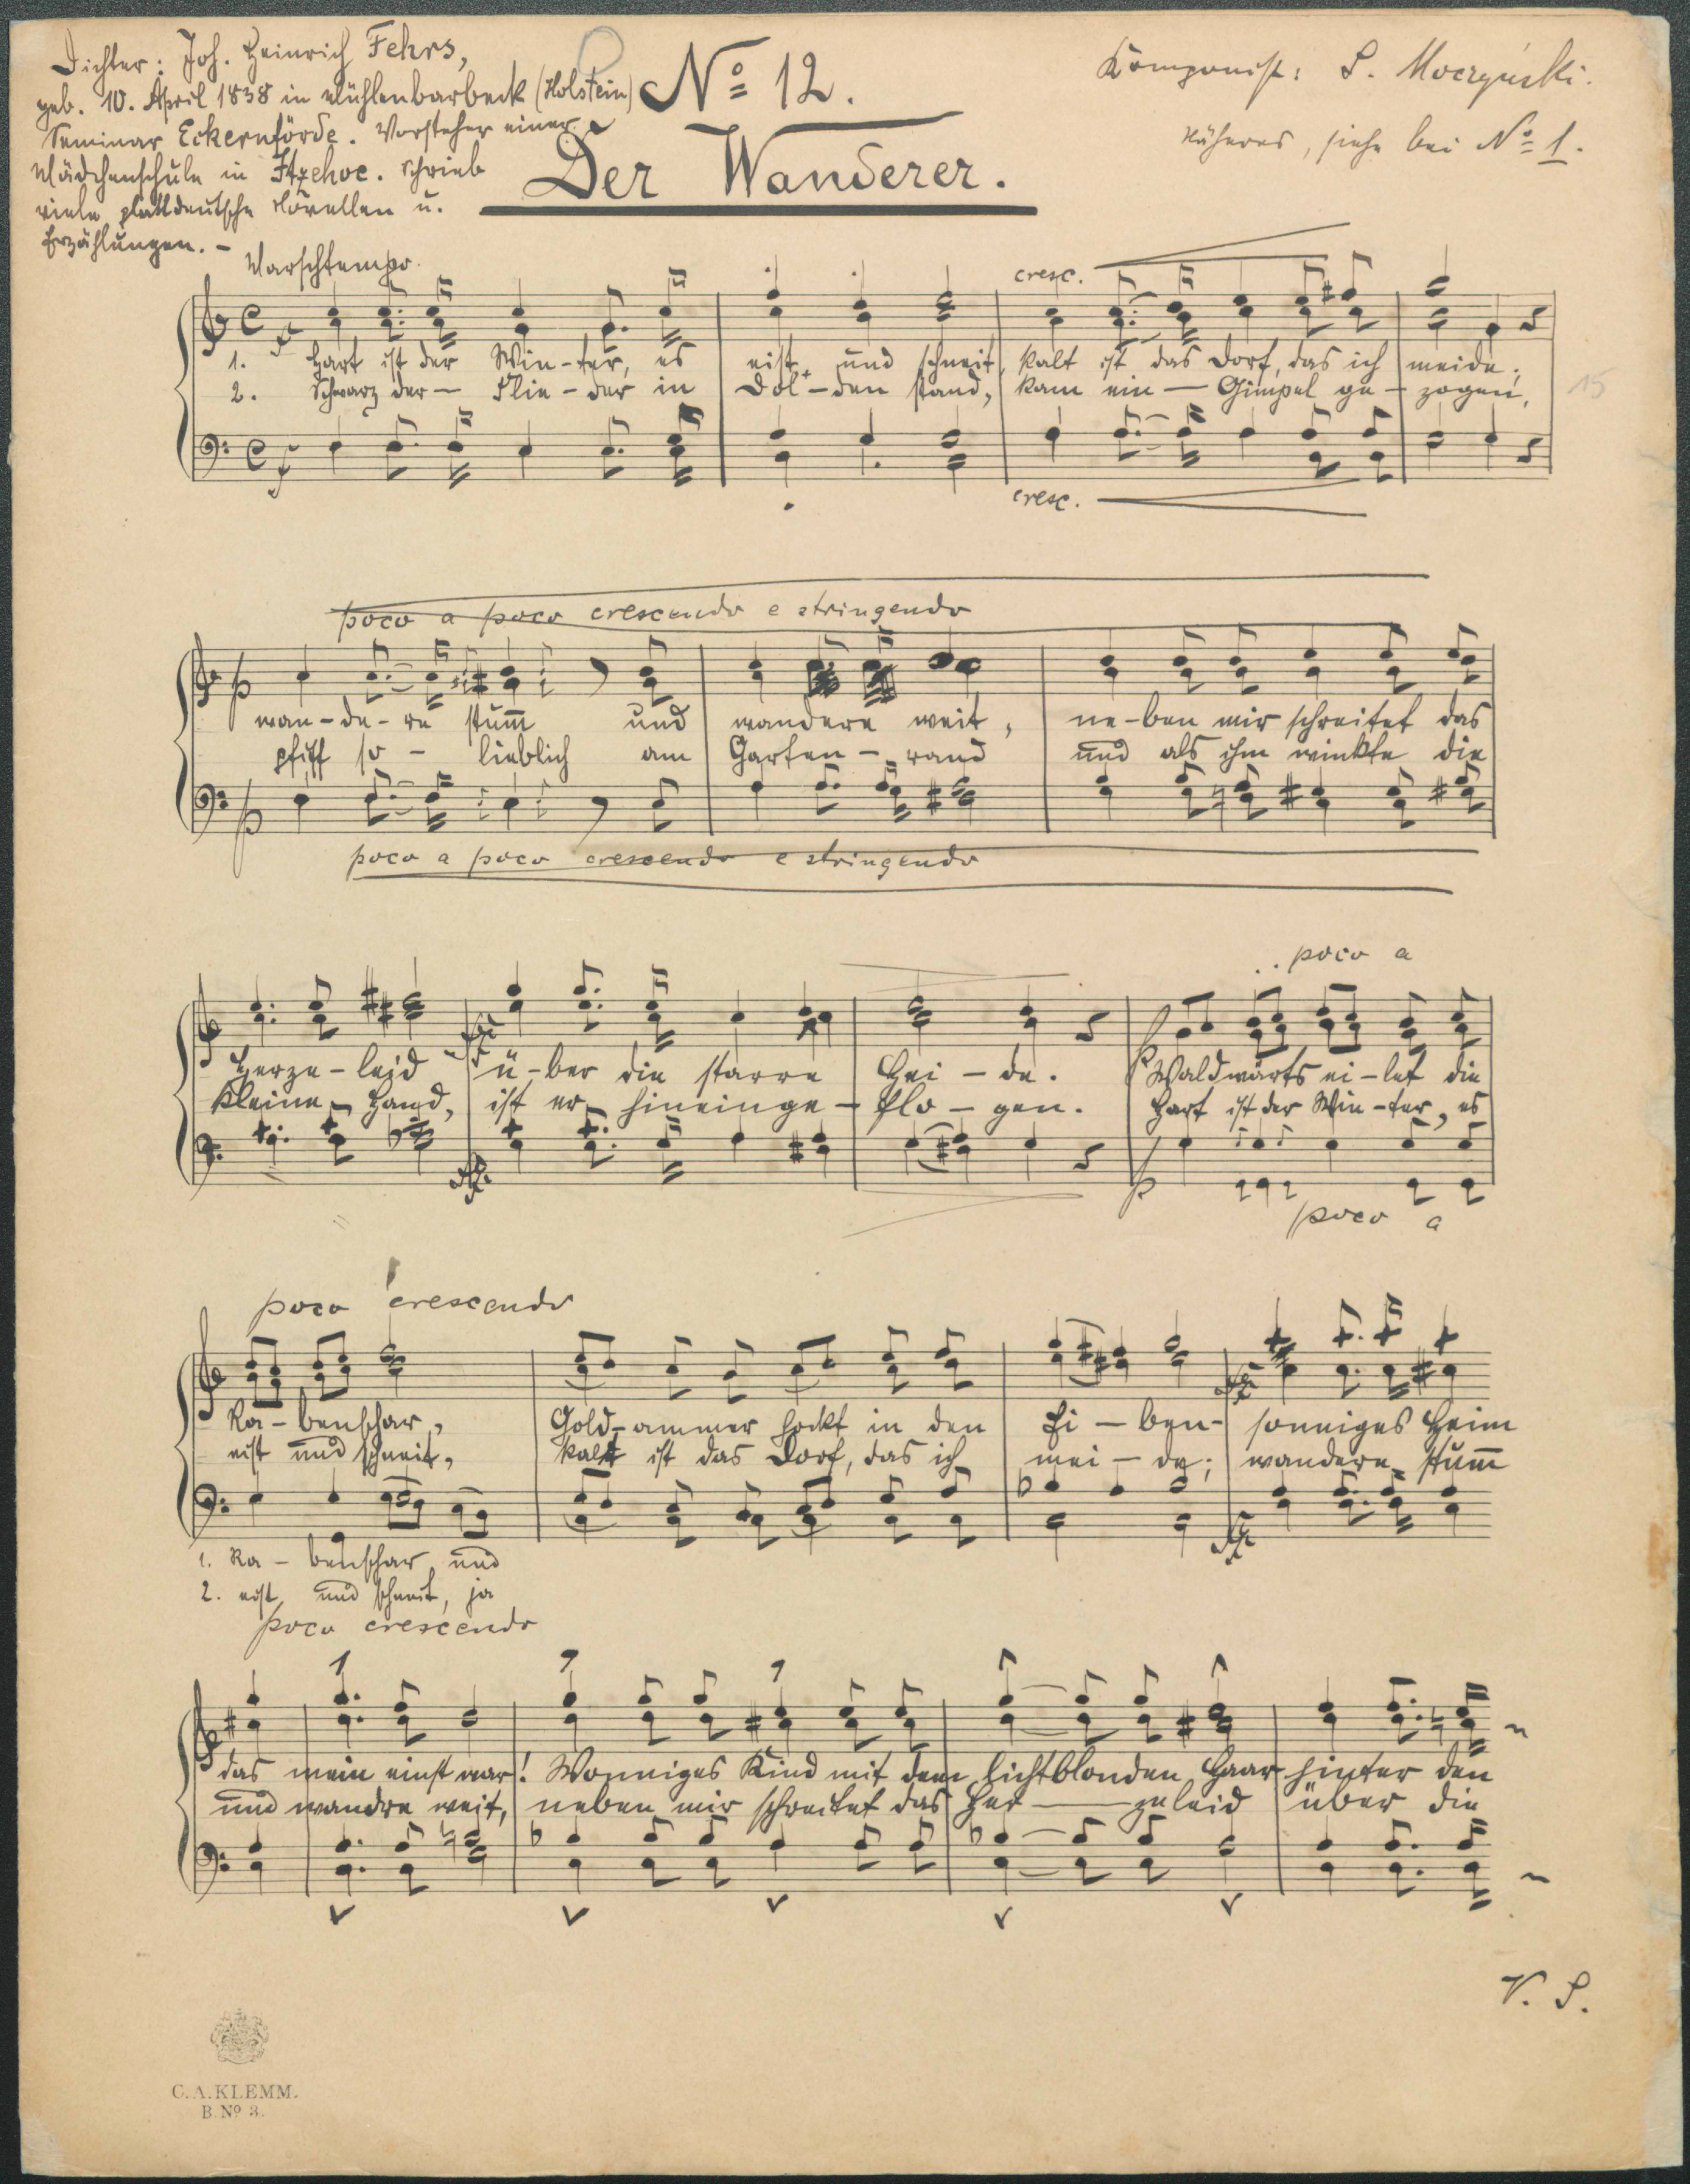 Dichter: Joh. Heinrich Fehrs,
geb. 10. April 1838 in Mühlenbarbeck (Holstein)
Seminar Eckernförde. Vorsteher einer
Mädchenschule in Itzehoe. Schrieb
viele plattdeutsche Novellen u.
Erzählungen. –
No 12.
Der Wanderer.
Komponist: S. Moczyński.
Näheres, siehe bei No 1.
Marschtempo.
cresc.
1. Hart ist der Win-ter, es eist und schneit, kalt ist das Dorf, das ich meide;
2. Schwarz der — Flie-der in Dol-den stand, kam ein — Gimpel ge-zogen,
15
cresc.
poco a poco crescendo e stringendo
p
wan-de-re stum̅ und wandere weit, ne-ben mir schreitet das
pfiff so - lieblich am Garten-rand und als ihm winkte die
p
poco a poco crescendo e stringendo
poco a
Herze-leid ü-ber die starre Hei-de. Waldwärts ei-let die
kleine Hand, ist er hineinge-flo-gen. Hart ist der Win-ter, es
p
poco a
poco crescendo
Ra-benschar, Gold-ammer hockt in den Ei-ben- sonniges Heim
eist und schneit, kalt ist das Dorf, das ich mei-de; wandere stum̅
1. Ra-benschar und
2. eist und schneit, ja
poco crescendo
das mein einst war! Wonniges Kind mit dem lichtblonden Haar hinter den
und wandre weit, neben mir schreitet das Her — zeleid über die
V. S.
C. A. KLEMM.
B. No 3.